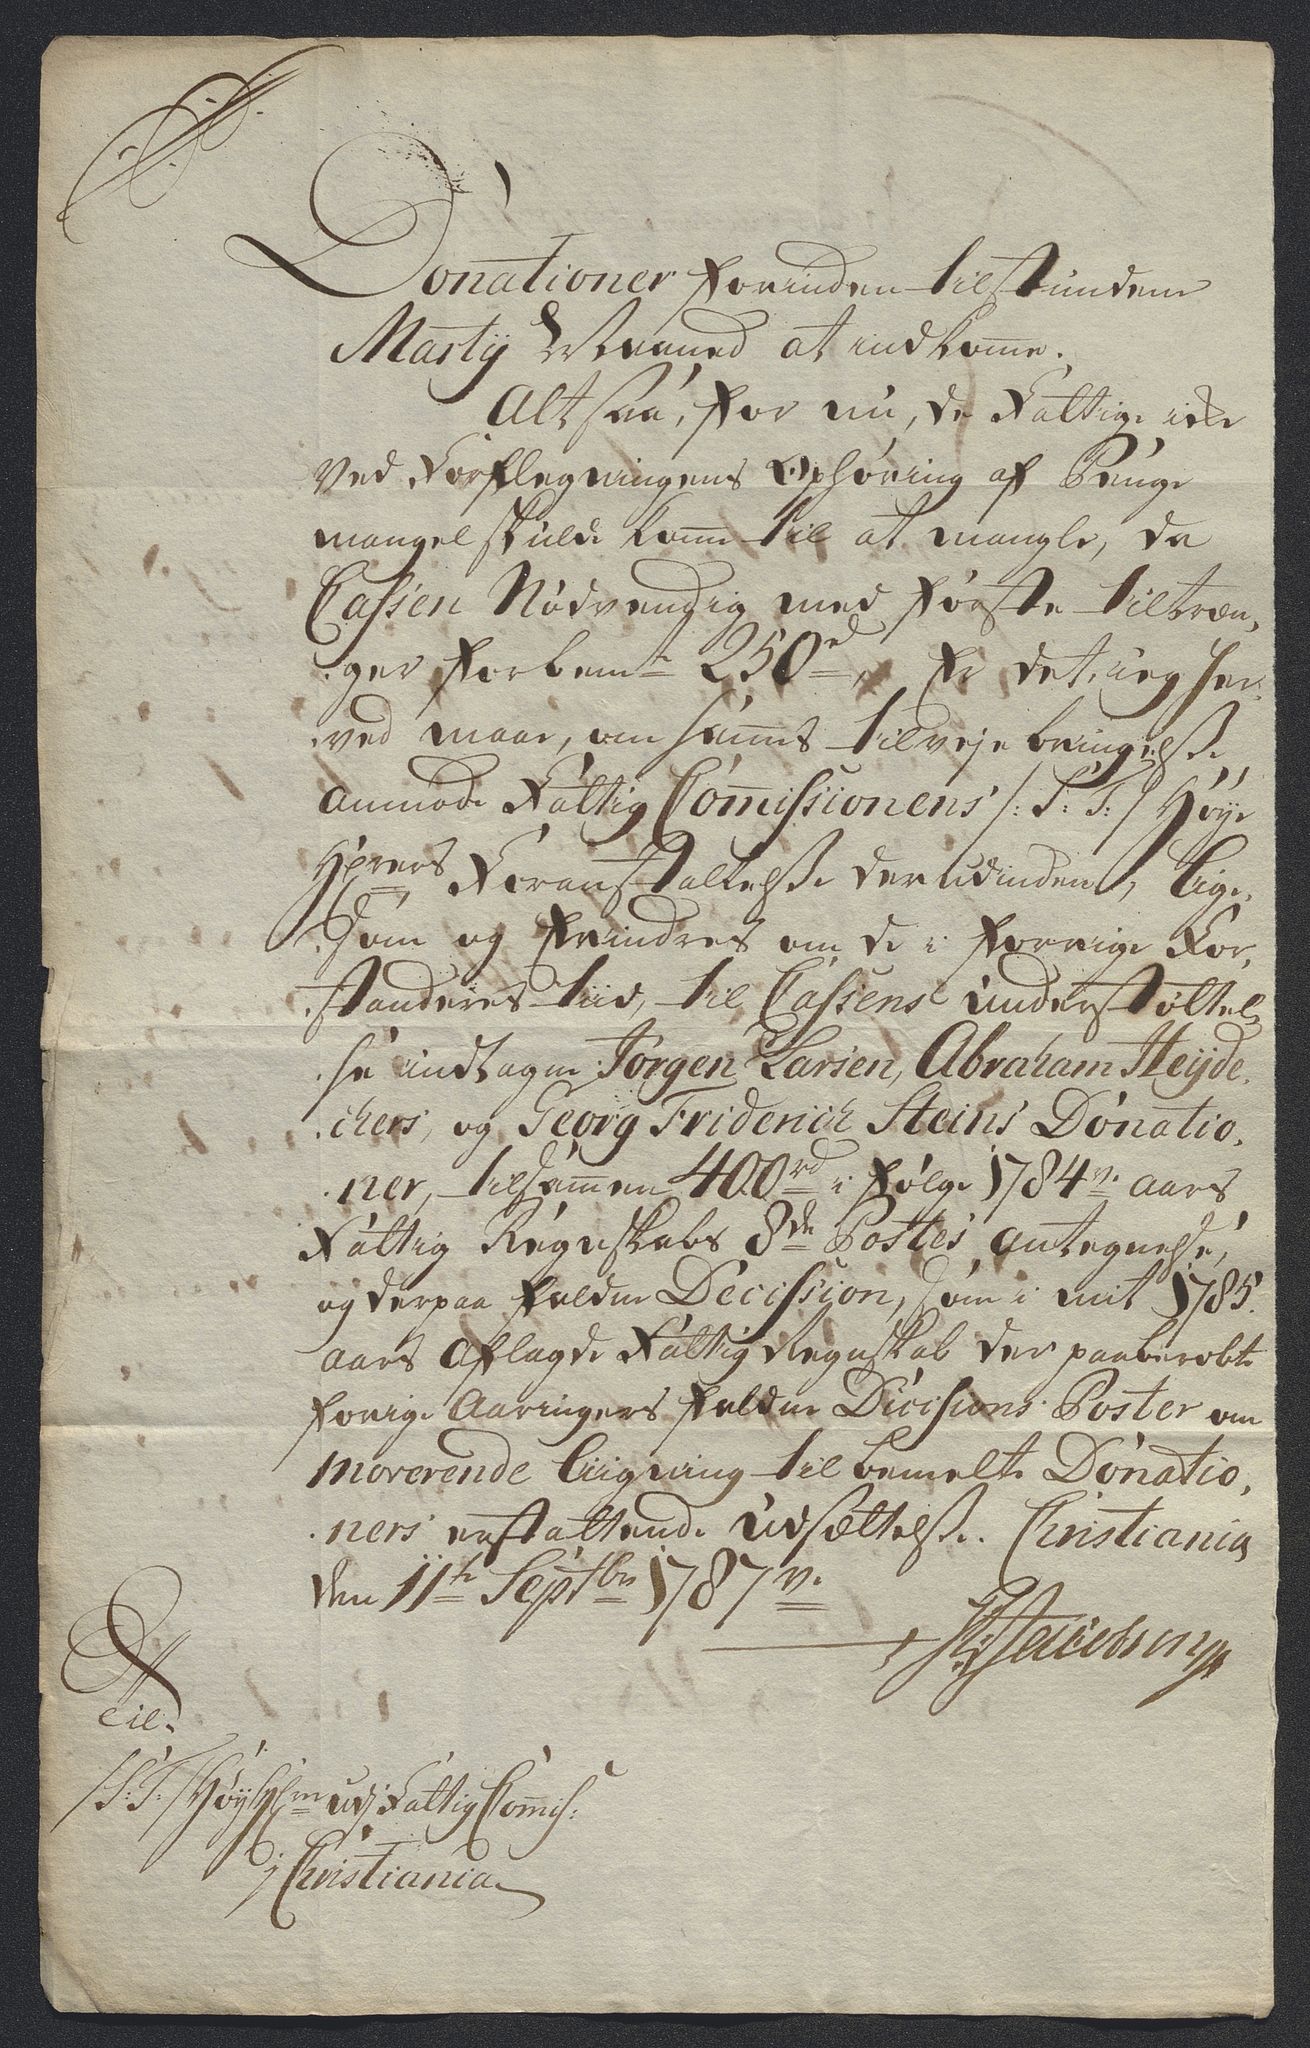 Donationer forinden tilstundende
Martij Maaned at indkomme.
Alt saa, for nu, de Fattige icke
ved Forflegningens Ophøring af Penge
mangel skulde komme til at mangle, da
Cassen Nødvendig med første tiltræn,
,ger forbemte 250rd, Er det ieg her,
,ved maae, om sammes tilveje bringelse
anmode Fattig Commissionens /:S:T:/ Høye
Herrers Foranstaltelse derudinden, lige,
,som og erindres om de i forrige For,
,standeres tiid, til Cassens understøttel,
,se indtagne Jørgen Larsen, Abraham Heyde,
,chers, og Georg Friderich Steins Donatio,
,ner, tilsammen 400rd i følge 1784 aars
Fattig Regnskabs 8de Postes antegnelse,
og derpaa faldne Decission, som i mit 1785
aars aflagde Fattig Regnskab der paaberobte
forige Aaringers faldne Dicisions Poster om
moverende liigning til bemelte Donatio,
,ners erstattende udsættelse. Christiania
den 11te Septbr 1787
Jacobsen
Til
/S:T:/ Høy Hrn udj Fattig Commis:
j Christiania